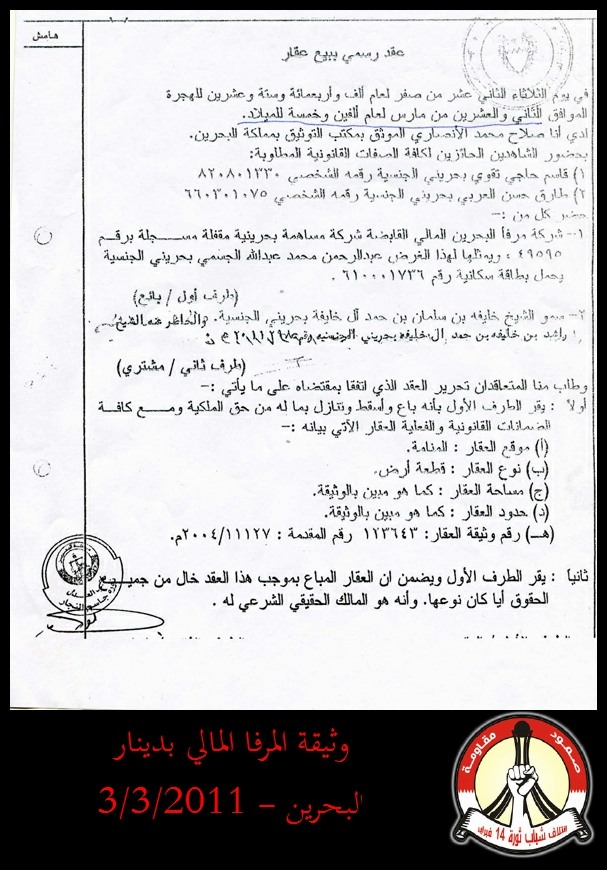 هامش
عقد رسمي ببيع عقار
في يوم الثلاثاء الثاني عشر من صفر لعام ألف وأربعمائة وستة وعشرين للهجرة
الموافق الثاني والعشرين من مارس لعام ألفين وخمسة للميلاد.
لدي أنا صلاح محمد الأنصاري الموثق بمكتب التوثيق بمملكة البحرين.
بحضور الشاهدين الحائزين لكافة الصفات القانونية المطلوبة:
١) قاسم حاجي تقوي بحريني الجنسية رقمه الشخصي ٨٢٠٨٠١٣٣٠
٢) طارق حسن العربي بحريني الجنسية رقمه الشخصي ٦٦٠٣٠١٠٧٥
حضر كل من :-
١- شركة مرفأ البحرين المالي القابضة شركة مساهمة بحرينية مقفلة مسجلة برقم
٤٩٥٩٥ ، ويمثلها لهذا الغرض عبدالرحمن محمد عبدالله الجسمي بحريني الجنسية
يحمل بطاقة سكانية رقم ٦١٠٠٠١٧٣٦ .
(طرف أول / بائع)
٢- سمو الشيخ خليفه بن سلمان بن حمد آل خليفة بحريني الجنسية. والحاضر عنه الشيخ
راشد بن خليفه بن حمد آل خليفه بحريني الجنسيه
(طرف ثاني / مشتري)
وطلب منا المتعاقدان تحرير العقد الذي اتفقا بمقتضاه على ما يأتي :-
أولاً : يقر الطرف الأول بأنه باع وأسقط وتنازل بما له من حق الملكية ومع كافة
الضمانات القانونية والفعلية العقار الآتي بيانه :-
(أ) موقع العقار : المنامة.
(ب) نوع العقار : قطعة أرض.
(ج) مساحة العقار : كما هو مبين بالوثيقة.
(د) حدود العقار : كما هو مبين بالوثيقة.
(هـ) رقم وثيقة العقار: ١١٣٦٤٣ رقم المقدمة : ٢٠٠٤/١١١٢٧م.
ثانياً : يقر الطرف الأول ويضمن ان العقار المباع بموجب هذا العقد خال من جميع
الحقوق أيا كان نوعها. وأنه هو المالك الحقيقي الشرعي له .
وثيقة المرفا المالي بدينار
البحرين – 3/3/2011
صمود مقاومة
ائتلاف شباب ثورة 14 فبراير